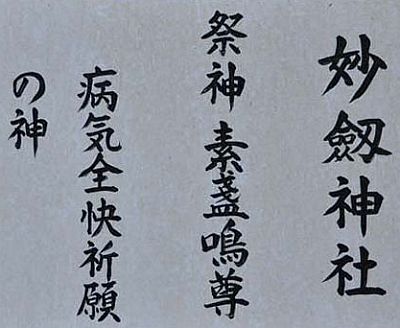 妙劔神社
祭神 素盞鳴尊
病気全快祈願
の神